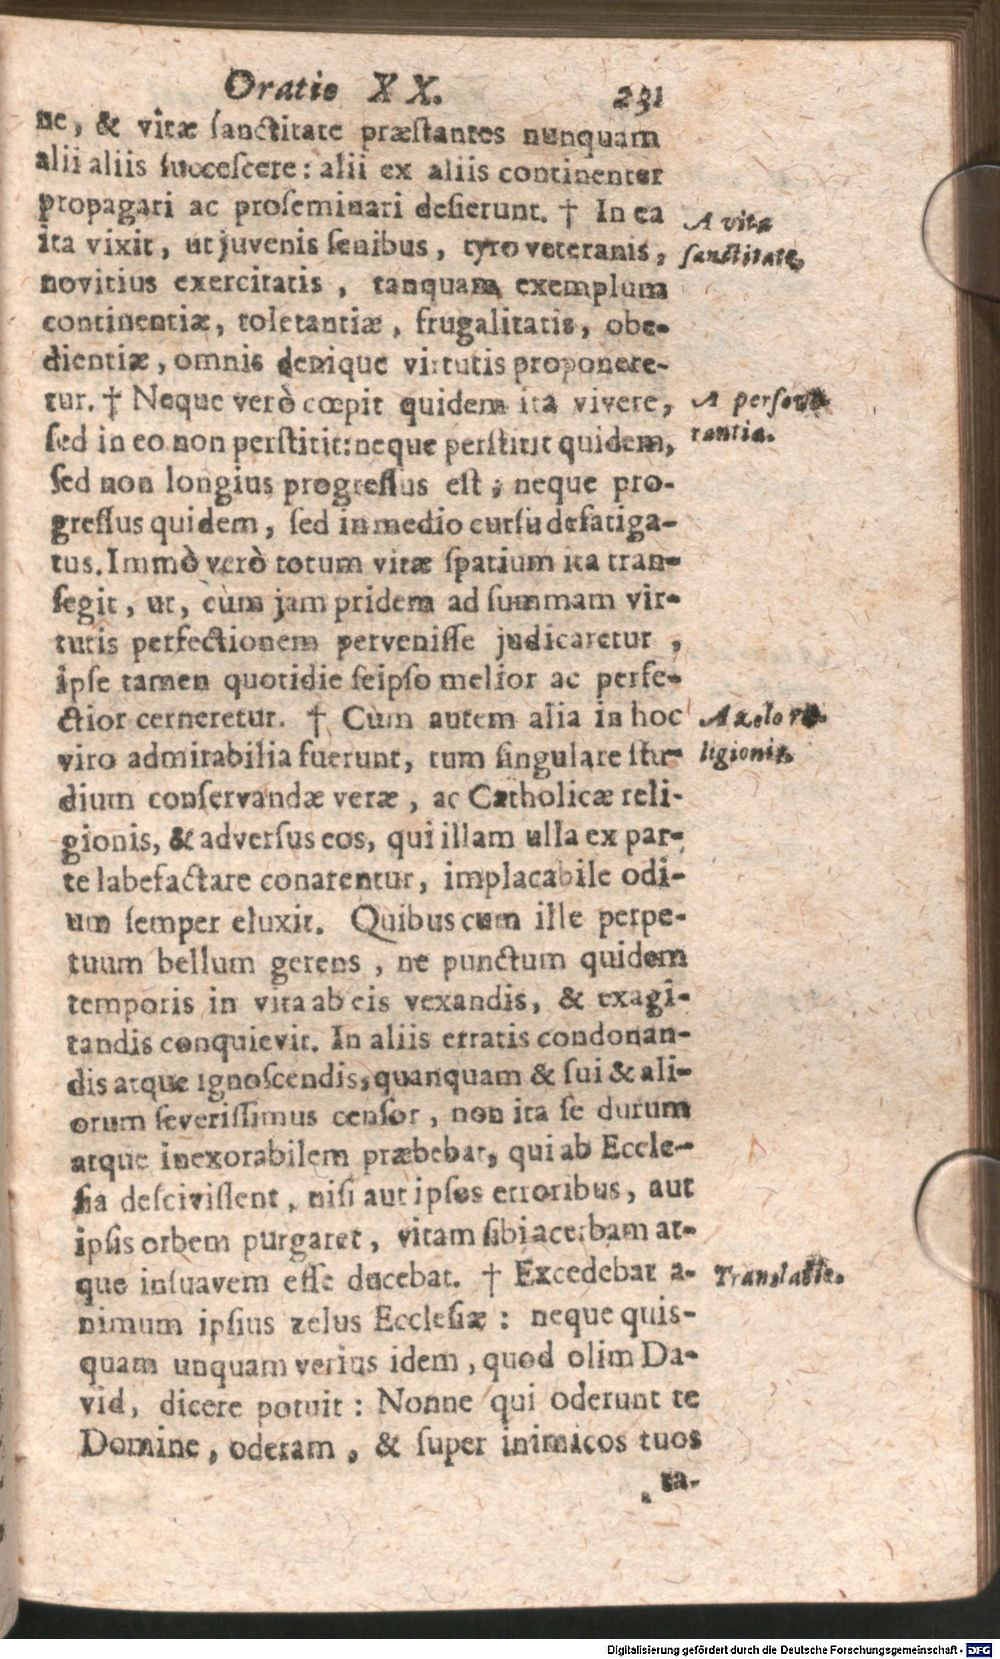 Oratio XX. 231
ne, & vitæ ſanctitate præſtantes nunquam
alii aliis ſucceſcere: alii ex aliis continenter
propagari ac proſeminari deſierunt. † In ea
ita vixit, ut juvenis ſenibus, tyro veteranis,
novitius exercitatis, tanquam exemplum
continentiæ, tolerantiæ, frugalitatis, obe-
dientiæ, omnis denique virtutis proponere-
tur. † Neque verò cœpit quidem ita vivere,
ſed in eo non perſtitit: neque perſtitit quidem,
ſed non longius progreſſus eſt; neque pro-
greſſus quidem, ſed in medio curſu defatiga-
tus. Immò verò totum vitæ ſpatium ita tran-
ſegit, ut, cùm jam pridem ad ſummam vir-
tutis perfectionem perveniſſe judicaretur,
ipſe tamen quotidie ſeipſo melior ac perfe-
ctior cerneretur. † Cùm autem alia in hoc
viro admirabilia fuerunt, tum ſingulare ſtu-
dium conſervandæ veræ, ac Catholicæ reli-
gionis, & adverſus eos, qui illam ulla ex par-
te labefactare conarentur, implacabile odi-
um ſemper eluxit. Quibus cum ille perpe-
tuum bellum gerens, ne punctum quidem
temporis in vita ab eis vexandis, & exagi-
tandis conquievit. In aliis erratis condonan-
dis atque ignoſcendis, quanquam & ſui & ali-
orum ſeveriſſimus cenſor, non ita ſe durum
atque inexorabilem præbebat, qui ab Eccle-
ſia deſciviſſent, niſi aut ipſos erroribus, aut
ipſis orbem purgaret, vitam ſibi acerbam at-
que inſuavem eſſe ducebat. † Excedebat a-
nimum ipſius zelus Eccleſiæ: neque quis-
quam unquam verius idem, quod olim Da-
vid, dicere potuit: Nonne qui oderunt te
Domine, oderam, & ſuper inimicos tuos
ta-
A vita
ſanctitate.
A perſeve-
rantia.
A zelo re-
ligionis.
Translatio.
Digitalisierung gefördert durch die Deutsche Forschungsgemeinschaft - DFG